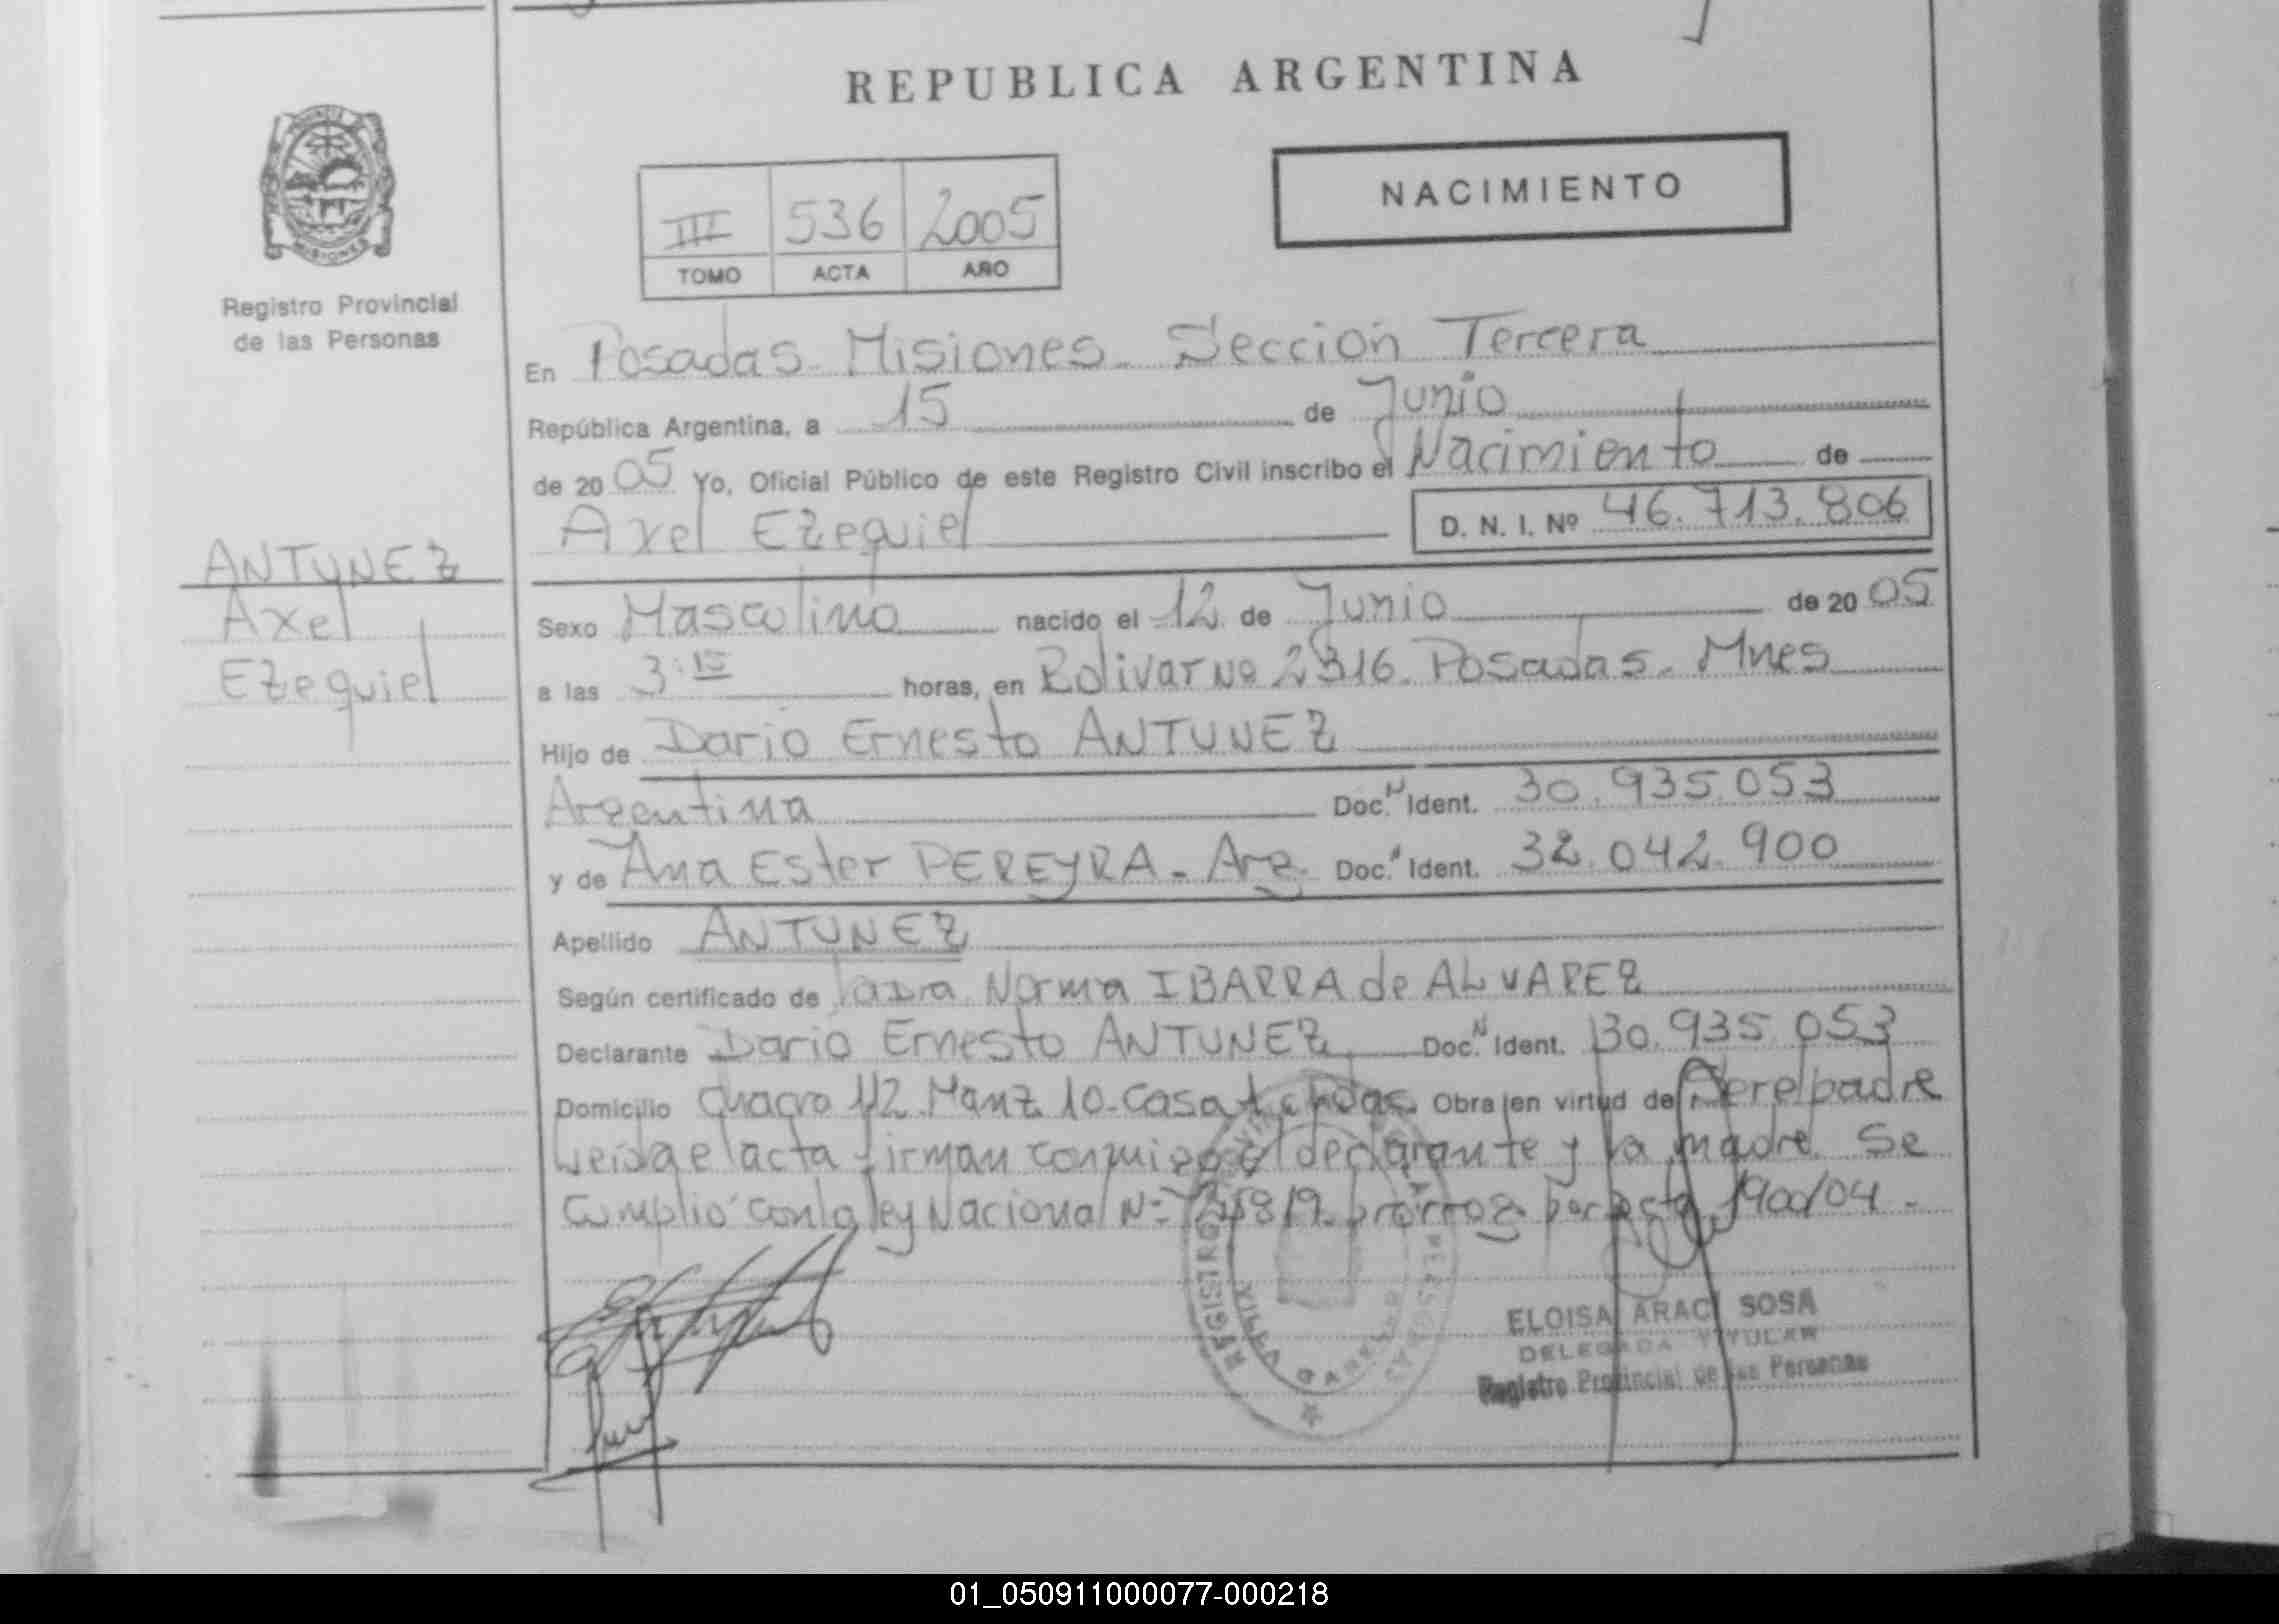 REPUBLICA ARGENTINA
NACIMIENTO
III 536 2005
TOMO ACTA AÑO
PROVINCIA
MISIONES
Registro Provincial
de las Personas
En Posadas - Misiones - Sección Tercera
República Argentina, a 15 de Junio
de 2005 Yo, Oficial Público de este Registro Civil inscribo el Nacimiento de
Axel Ezequiel D. N. I. Nº 46.713.806
ANTUNEZ
Axel
Ezequiel
Sexo Masculino nacido el 12 de Junio de 2005
a las 3:15 horas, en Bolivar Nº 2316. Posadas - Mnes
Hijo de Dario Ernesto ANTUNEZ
Argentina Doc. N Ident. 30.935.053
y de Ana Ester PEREYRA - Arg. Doc. Ident. 32.042.900
Apellido ANTUNEZ
Según certificado de Norma IBARRA de ALVAREZ
Declarante Dario Ernesto ANTUNEZ Doc. N Ident. 30.935.053
Domicilio Chacra 112 Manz 10 - Casa Obra en virtud de Ser el padre
Leida el acta firman conmigo el declarante y la madre. Se
Cumplió con la ley Nacional Nº prorrog. por 1900/04.-
REGISTRO PROVINCIAL DE LAS PERSONAS
VILLA
ELOISA ARACI SOSA
DELEGADA TITULAR
Registro Provincial de las Personas
01_050911000077-000218